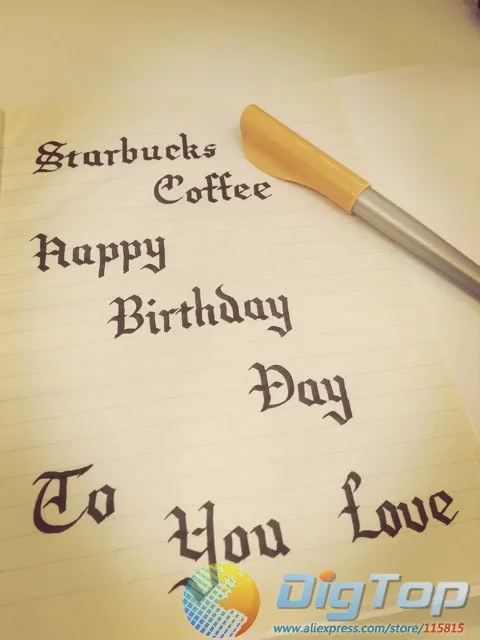 Starbucks
Coffee
Happy
Birthday
Day
To You Love
DigTop
www.aliexpress.com/store/115815